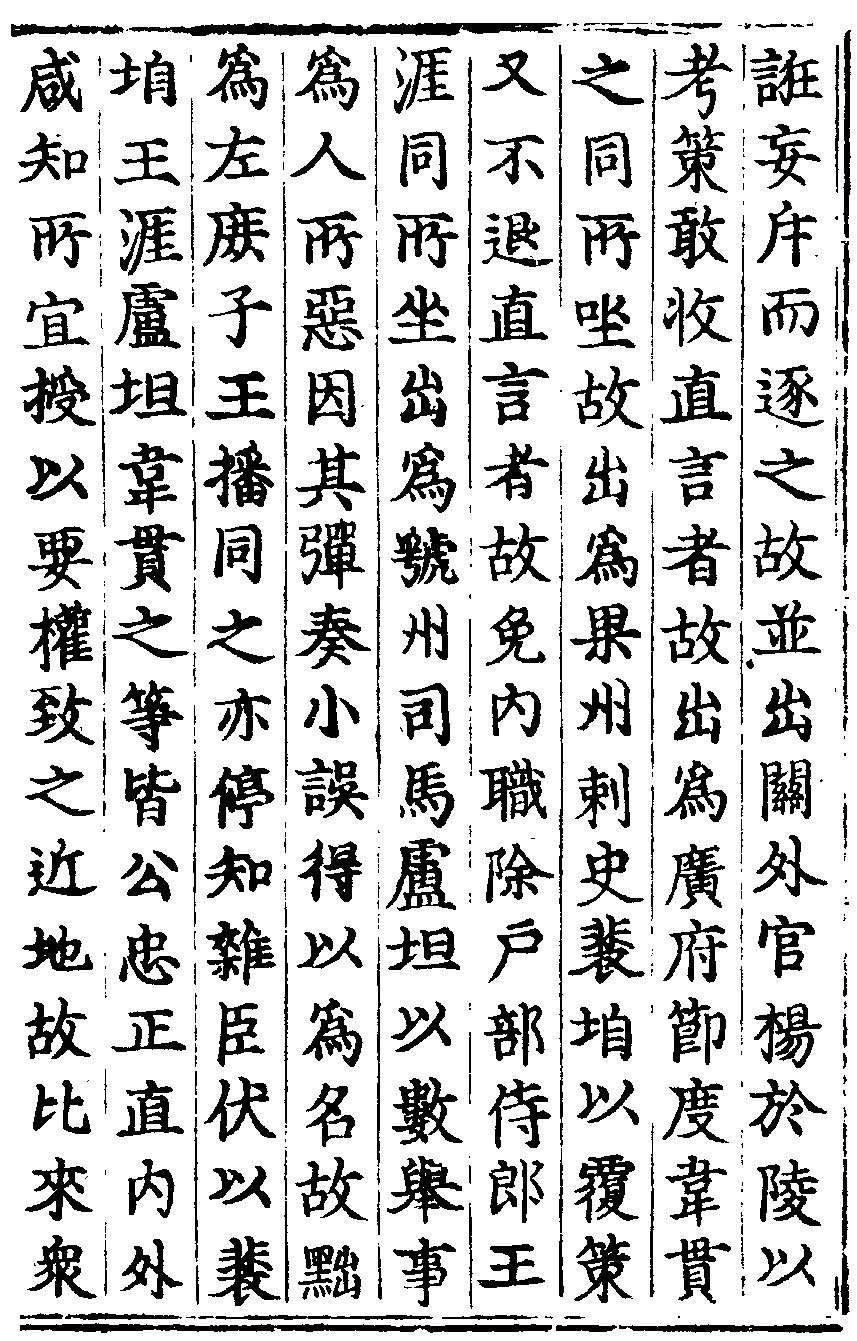 誑妄斥而逐之故並出關外官楊於陵以
考策敢收直言者故出爲廣府節度韋貫
之同所坐故出爲果州刺史裴垍以覆策
又不退直言者故免內職除戶部侍郎王
涯同所坐出爲虢州司馬盧坦以數舉事
爲人所惡因其彈奏小誤得以爲名故黜
爲左庶子王播同之亦停知雜臣伏以裴
垍王涯盧坦韋貫之等皆公忠正直內外
咸知所宜授以要權致之近地故比來衆